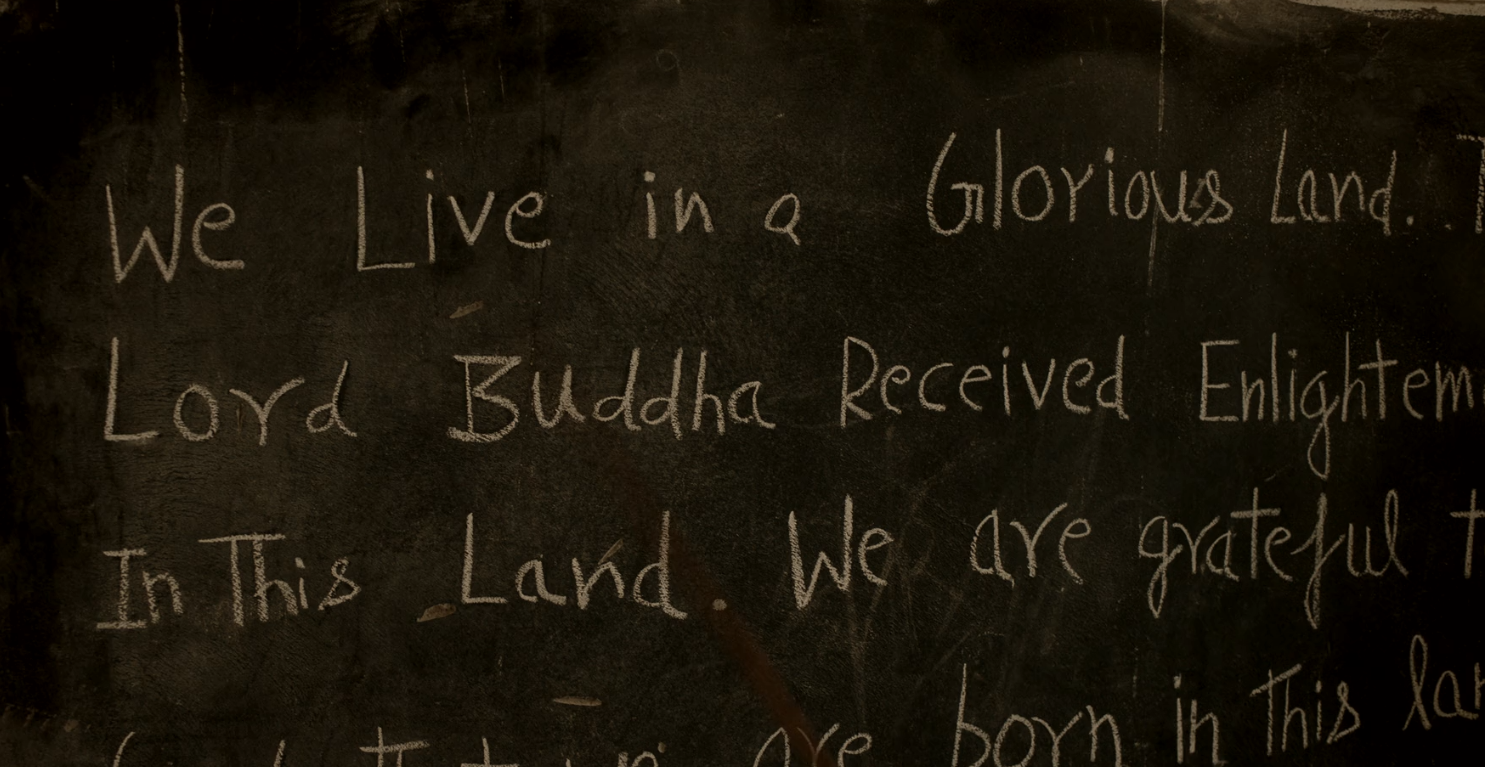 We Live in a Glorious Land.
Lord Buddha Received
In This Land. We are grateful
are born in This